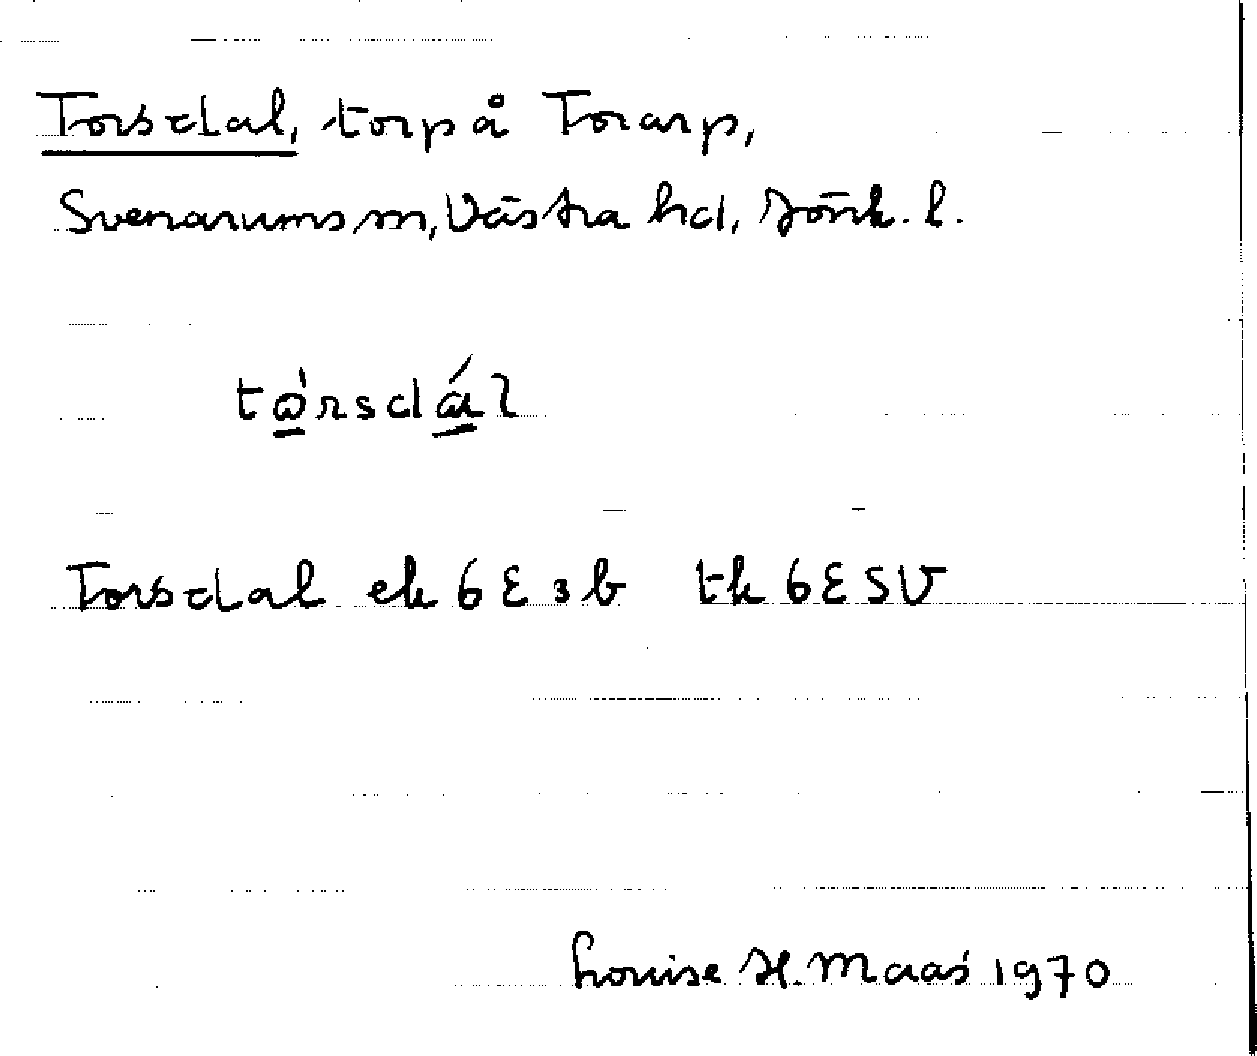 Torsdal, torp å Torarp,
Svenarums sn, Västra hd, Jönk. l.
tò̱rsdá̱l
Torsdal ek 6E3b tk 6ESV
Louise H. Maas 1970